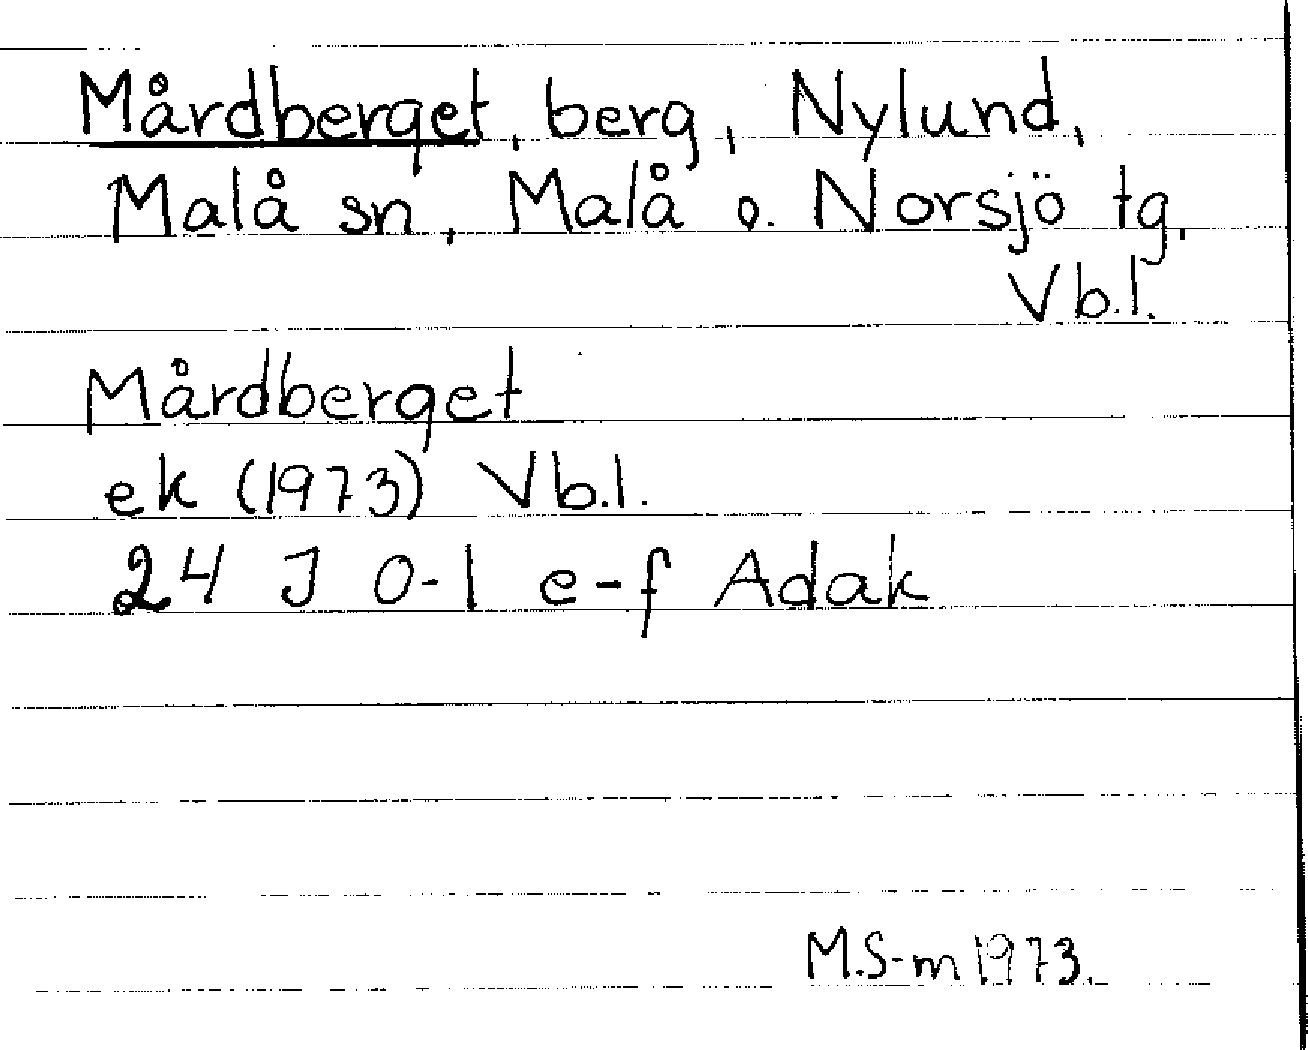 Mårdberget, berg, Nylund,
Malå sn, Malå o. Norsjö tg,
Vb.l.
Mårdberget
ek (1973) Vb.l.
24 J 0-1 e-f Adak
M.S-m 1973.